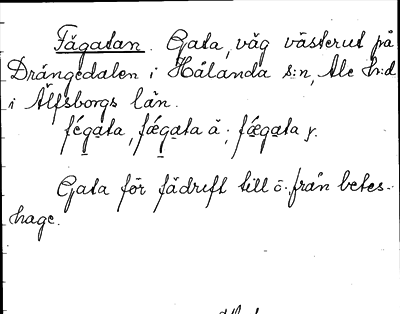 Fägatan. Gata, väg västerut på
Drängedalen i Hålanda s:n, Ale h:d
i Älfsborgs län.
fégata, fǽgata ä; fǽgata y.
Gata för fädrift till o. från betes-
hage.